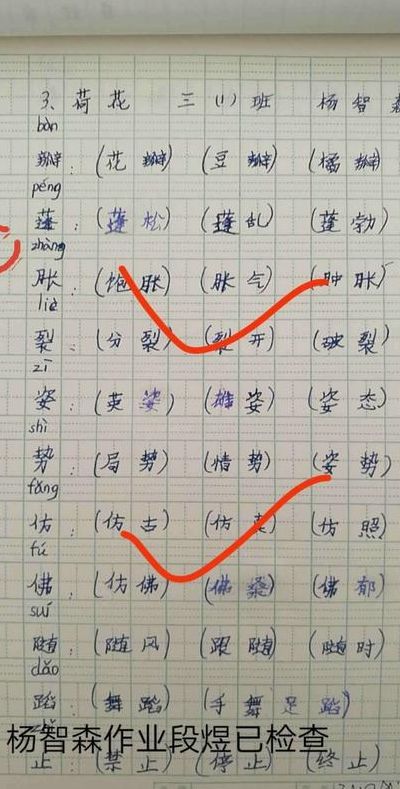 3、荷花 三(1)班 杨智森
bàn
瓣：(花瓣) (豆瓣) (橘瓣)
péng
蓬：(蓬松) (蓬乱) (蓬勃)
zhàng
胀：(饱胀) (胀气) (肿胀)
liè
裂：(分裂) (裂开) (破裂)
zī
姿：(英姿) (雄姿) (姿态)
shì
势：(局势) (情势) (姿势)
fǎng
仿：(仿古) (仿真) (仿照)
fú
佛：(仿佛) (佛郁)
suí
随：(随风) (跟随) (随时)
dǎo
蹈：(舞蹈) (手舞足蹈)
杨智森作业段煜已检查
止：(禁止) (停止) (终止)